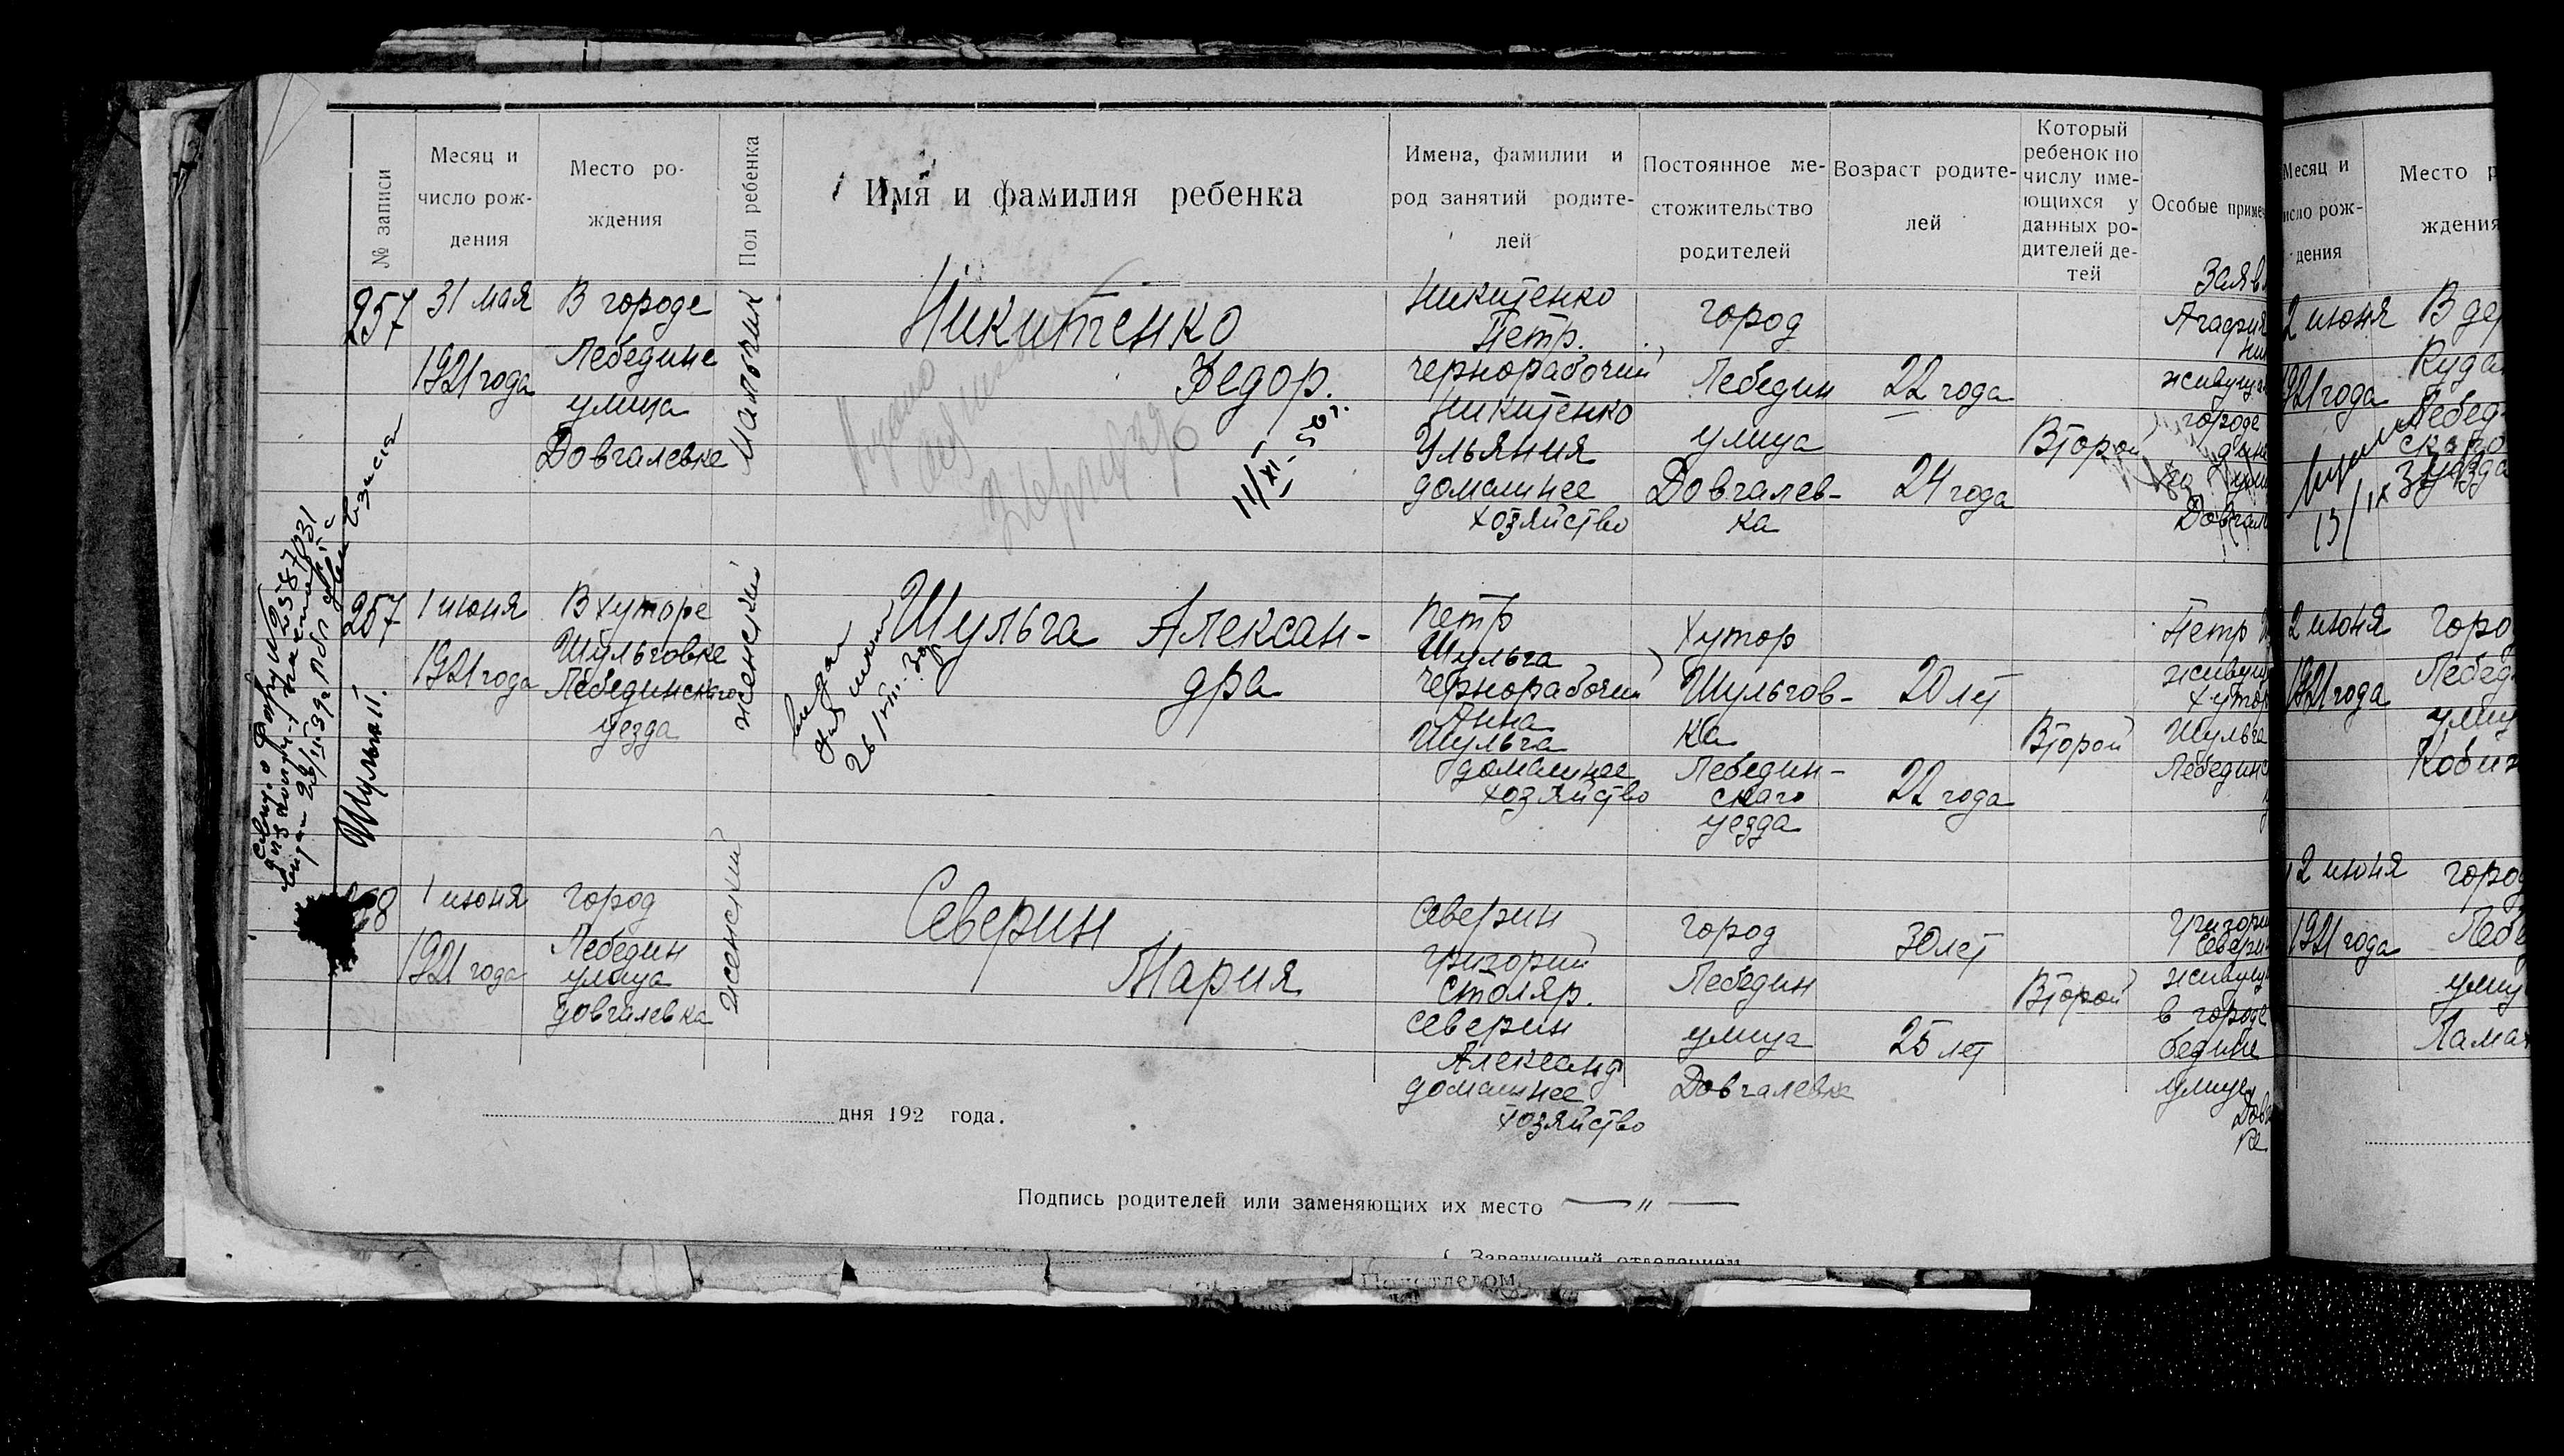 № записи
Месяц и
число рож-
дения
Место ро-
ждения
Пол ребенка
Имя и фамилия ребенка
Имена, фамилии и
род занятий родите-
лей
Постоянное ме-
стожительство
родителей
Возраст родите-
лей
Который
ребенок по
числу име-
ющихся у
данных ро-
дителей де-
тей
Особые приме
257
31 мая
1921 года
В городе
Лебедине
улица
Довгалевке
Мальчик
Никитенко
Федор.
11/XI-50г.
Никитенко
Петр.
чернорабочий
Никитенко
Ульяния
домашнее
хозяйство
город
Лебедин
улица
Довгалев-
ка
22 года
24 года
Второй
Заяв
Агафия
живуща
городе
Довгал
257
1 июня
1921 года
В хуторе
Шульговке
Лебединского
уезда
женский
Шульга Алексан-
дра
26/VIII-39г
Петр
Шульга
чернорабочий
Анна
Шульга
домашнее
хозяйство
хутор
Шульгов-
ка
Лебедин-
скаго
уезда
20 лет
22 года
Второй
Петр
живущ
хутор
Шульга
Лебединс
8
1 июня
1921 года
город
Лебедин
улица
довгалевка
женский
Северин
Мария
Северин
Григорий
столяр.
Северин
Александ
домашнее
хозяйство
город
Лебедин
улица
Довгалевке
30 лет
25 лет
Второй
Григори
Севери
живущ
в городе
бедине
улице
Довг
ке
дня 192 года.
Подпись родителей или заменяющих их место — " —
Заведующий отделением
Подотделом
Месяц и
исло рож-
дения
Место р
ждения
2 июня
1921 года
В де
Куда
Лебед
скаго
уезда
2 июня
1921 года
горо
Лебед
улиц
Кобиж
2 июня
1921 года
город
Лебе
улиц
Лама